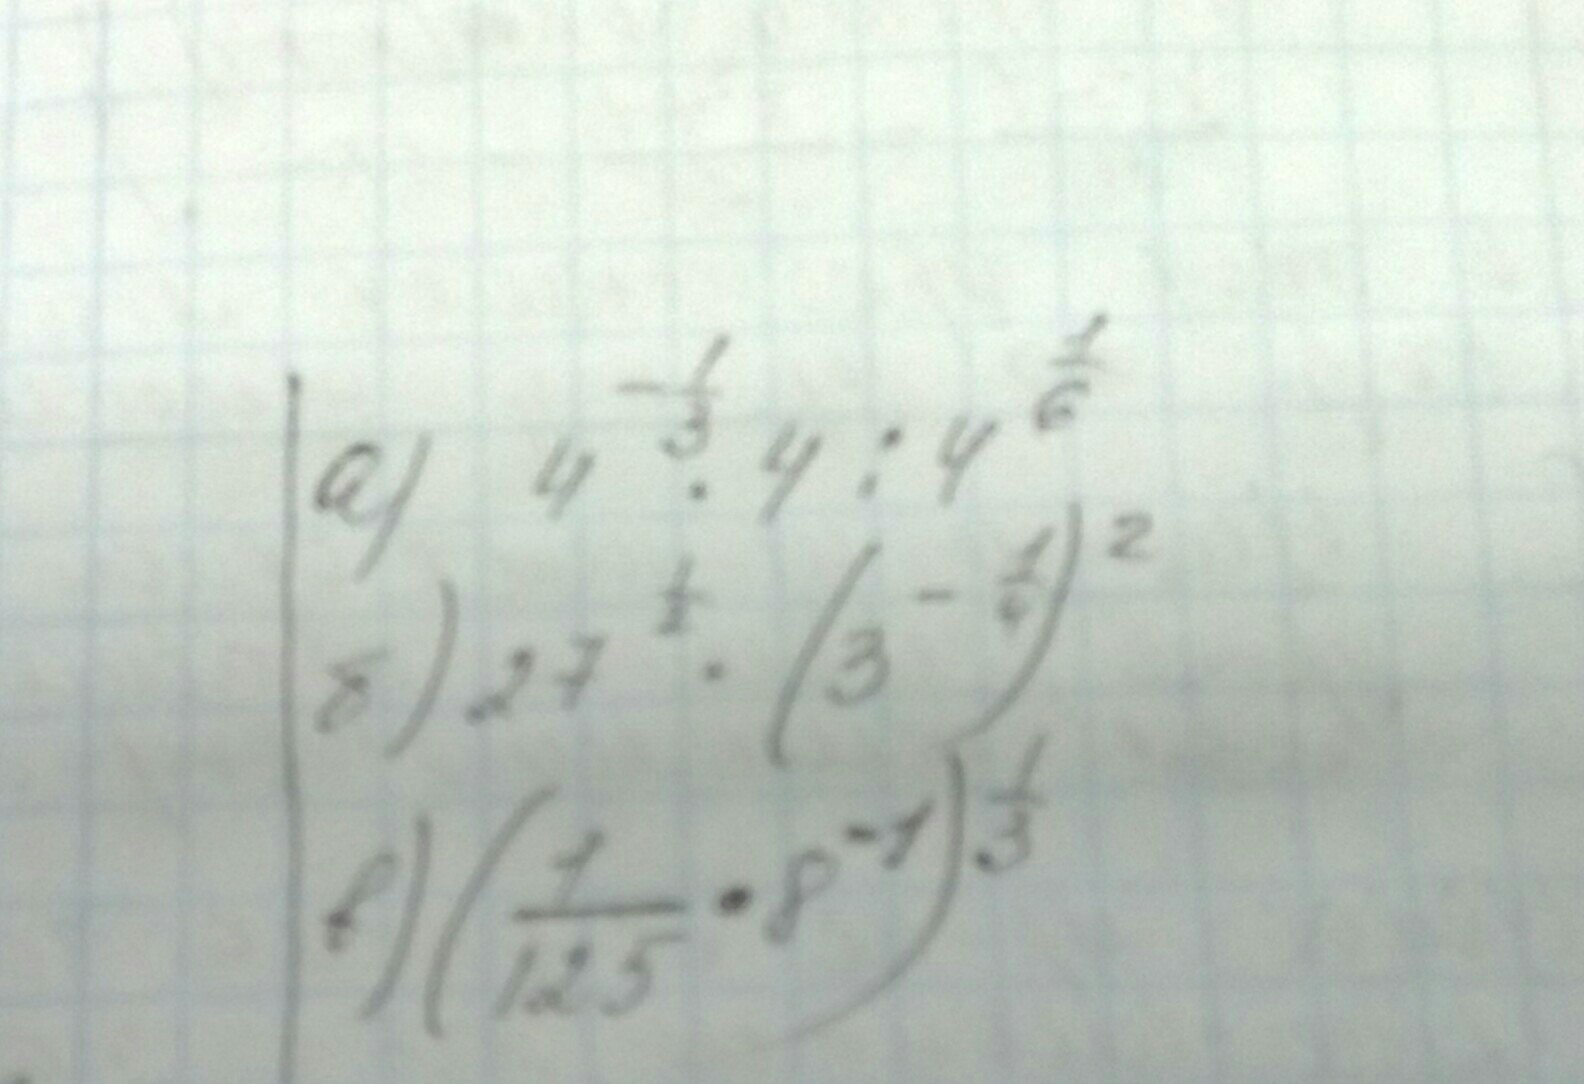 а) 4^{-\frac{1}{3}} · 4 : 4^{\frac{1}{6}}
б) 27^{\frac{1}{2}} · (3^{-\frac{1}{4}})^2
в) (\frac{1}{125} · 8^{-1})^{\frac{1}{3}}